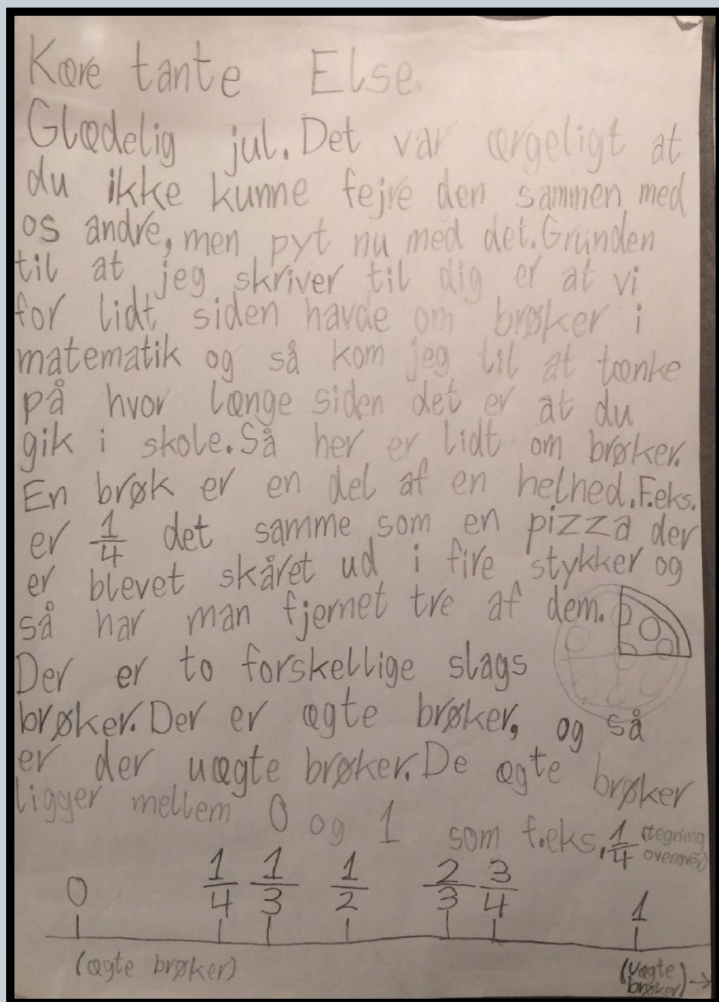 Kære tante Else,
Glædelig jul. Det var ærgeligt at
du ikke kunne fejre den sammen med
os andre, men pyt nu med det. Grunden
til at jeg skriver til dig er at vi
for lidt siden havde om brøker i
matematik og så kom jeg til at tænke
på hvor længe siden det er at du
gik i skole. Så her er lidt om brøker.
En brøk er en del af en helhed. F.eks.
er 1/4 det samme som en pizza der
er blevet skåret ud i fire stykker og
så har man fjernet tre af dem.
Der er to forskellige slags
brøker. Der er ægte brøker, og så
er der uægte brøker. De ægte brøker
ligger mellem 0 og 1 som f.eks. 1/4 (tegning
ovenover)
0 1/4 1/3 1/2 2/3 3/4 1
(ægte brøker) (uægte
brøker) →